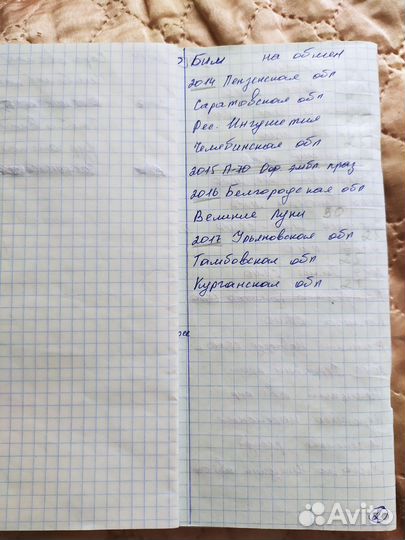 Бим на обмен
2014 Пензенская обл
Саратовская обл
Рес. Ингушетия
Челябинская обл
2015 Л-70 Оф эмбл праз
2016 Белгородская обл
Великие Луки
2017 Ульяновская обл
Тамбовская обл
Курганская обл
Avito